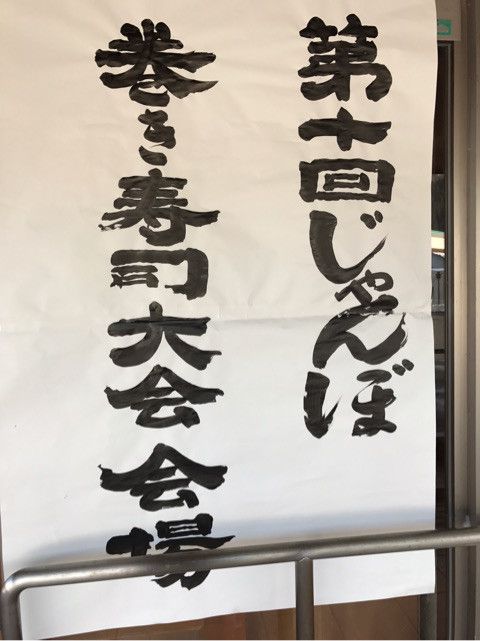 第十回じゃんぼ
巻き寿司大会会場